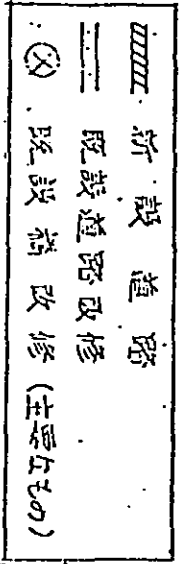 新設道路
既設道路改修
既設橋改修(主要なもの)